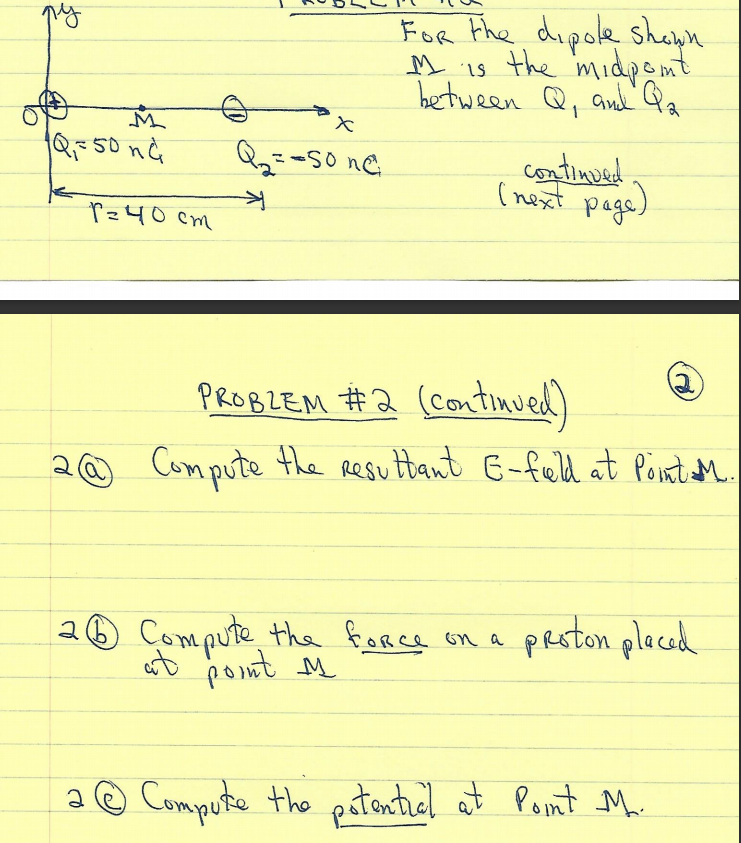 y
For the dipole shown
M is the midpoint
between Q₁ and Q₂
O + M − x
Q₁=50 nC Q₂=-50 nC
continued
(next page)
r=40 cm
2
PROBLEM #2 (continued)
2a Compute the resultant E-field at Point M.
2b Compute the force on a proton placed
at point M
2c Compute the potential at Point M.